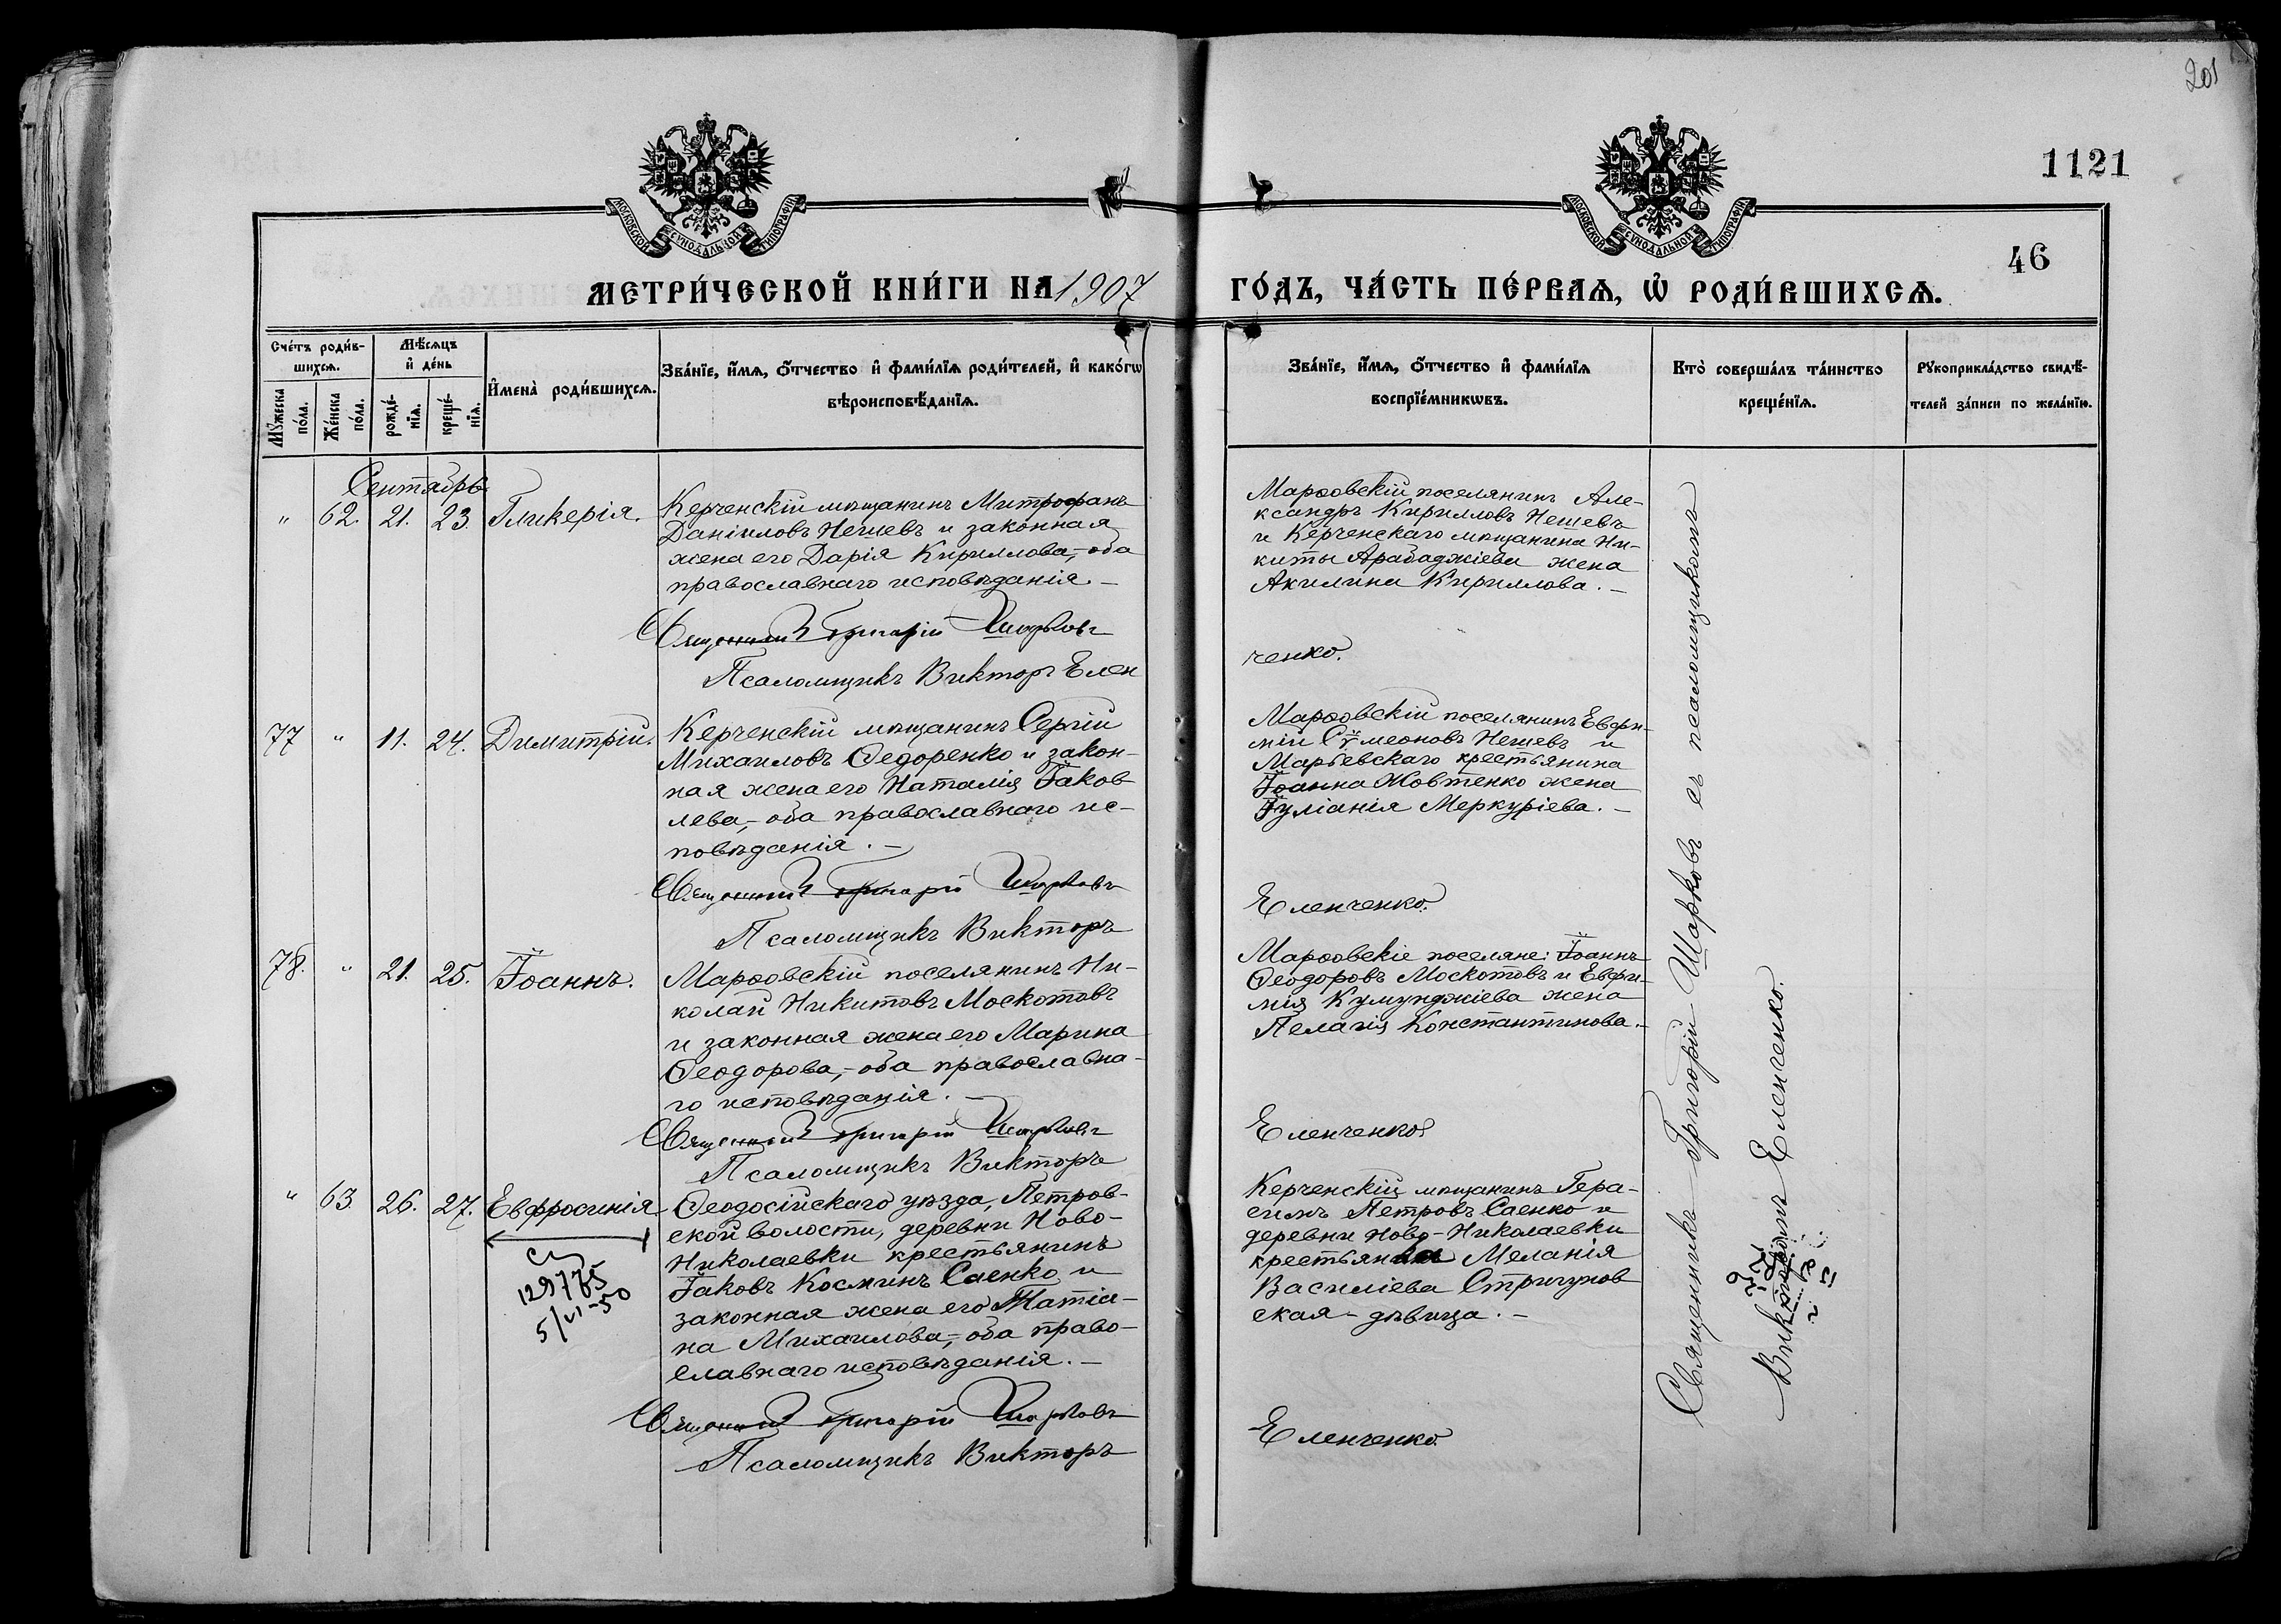 201
1121
46
МОСКОВСКОЙ СѴНОДАЛЬНОЙ ТИПОГРАФІИ
МОСКОВСКОЙ СѴНОДАЛЬНОЙ ТИПОГРАФІИ
МЕТРИ́ЧЕСКОЙ КНИ́ГИ НА 1907
ГО́ДЪ, ЧА́СТЬ ПЕ́РВАѦ, Ѡ҆ РОДИ́ВШИХСѦ.
Сче́тъ роди́в-
шихсѧ.
Мꙋ́жеска по́ла.
Же́нска по́ла.
Мѣ́сѧцъ
и҆ де́нь
рожде́-
нїѧ.
креще́-
нїѧ.
И҆мена̀ роди́вшихсѧ.
Зва́нїе, и҆́мѧ, ѻ҆́тчество и҆ фами́лїѧ роди́телей, и҆ како́гѡ
вѣроисповѣ́данїѧ.
Зва́нїе, и҆́мѧ, ѻ҆́тчество и҆ фами́лїѧ
воспрїе́мникѡвъ.
Кто̀ соверша́лъ та́инство
креще́нїѧ.
Рꙋкоприкла́дство свидѣ́-
телей за́писи по жела́нїю.
Сентябрь
" 62. 21. 23. Гликерія.
Керченскій мѣщанинъ Митрофанъ
Даніиловъ Нешевъ и законная
жена его Дарія Кириллова,- оба
православнаго исповѣданія. -
Священникъ Григорій Шарковъ
Псаломщикъ Викторъ Елен
Марѳовскій поселянинъ Але-
ксандръ Кирилловъ Нешевъ
и Керченскаго мѣщанина Ни-
киты Арабаджіева жена
Акилина Кириллова. -
ченко.
77 " 11. 24. Димитрій.
Керченскій мѣщанинъ Сергій
Михаиловъ Ѳедоренко и закон-
ная жена его Наталія Іаков
лева,- оба православнаго ис-
повѣданія. -
Священникъ Григорій Шарковъ
Псаломщикъ Викторъ
Марѳовскій поселянинъ Евфи-
мій Сѵмеоновъ Нешевъ и
Марьевскаго крестьянина
Іоанна Жовтенко жена
Іуліанія Меркуріева. -
Еленченко.
78. " 21. 25. Іоаннъ.
Марѳовскій поселянинъ Ни-
колай Никитовъ Москотовъ
и законная жена его Марина
Ѳеодорова,- оба православна-
го исповѣданія. -
Священникъ Григорій Шарковъ
Псаломщикъ Викторъ
Марѳовскіе поселяне: Іоаннъ
Ѳеодоровъ Москотовъ и Евфи-
мія Кумунджіева жена
Пелагія Константинова. -
Еленченко
" 63. 26. 27. Евфросинія
129775
5/VI-50
Ѳеодосійскаго уѣзда, Петров-
ской волости, деревни Ново-
Николаевки крестьянинъ
Іаковъ Косминъ Саенко и
законная жена его Татіа-
на Михаилова,- оба право-
славнаго исповѣданія. -
Священникъ Григорій Шарковъ
Псаломщикъ Викторъ
Керченскій мѣщанинъ Гера-
симъ Петровъ Саенко и
деревни Ново-Николаевки
крестьянка Меланія
Василіева Стригунов
ская - дѣвица. -
Еленченко
Священникъ Григорій Шарковъ съ псаломщикомъ
Викторомъ Еленченко.